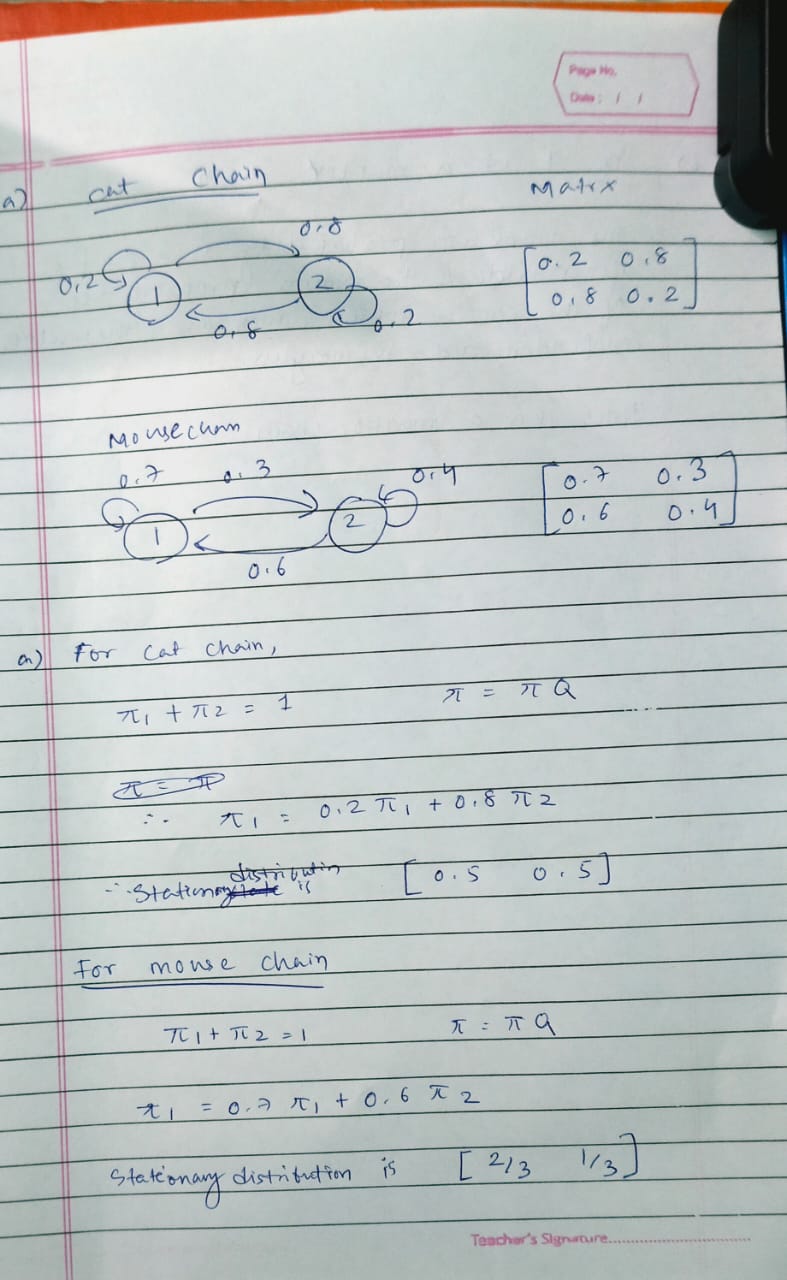 Page No.
Date: / /
a) cat chain
Matrx
0.8
0.2 1 2
0.8 0.2
[0.2 0.8
0.8 0.2]
Mouse chain
0.7 0.3 0.4
1 2
0.6
[0.7 0.3
0.6 0.4]
a) For cat chain,
π1 + π2 = 1 π = π Q
π = π
∴ π1 = 0.2 π1 + 0.8 π2
distributin
∴ Stationary state is [0.5 0.5]
For mouse chain
π1 + π2 = 1 π = π Q
π1 = 0.7 π1 + 0.6 π2
Stationary distribution is [2/3 1/3]
Teacher's Signature